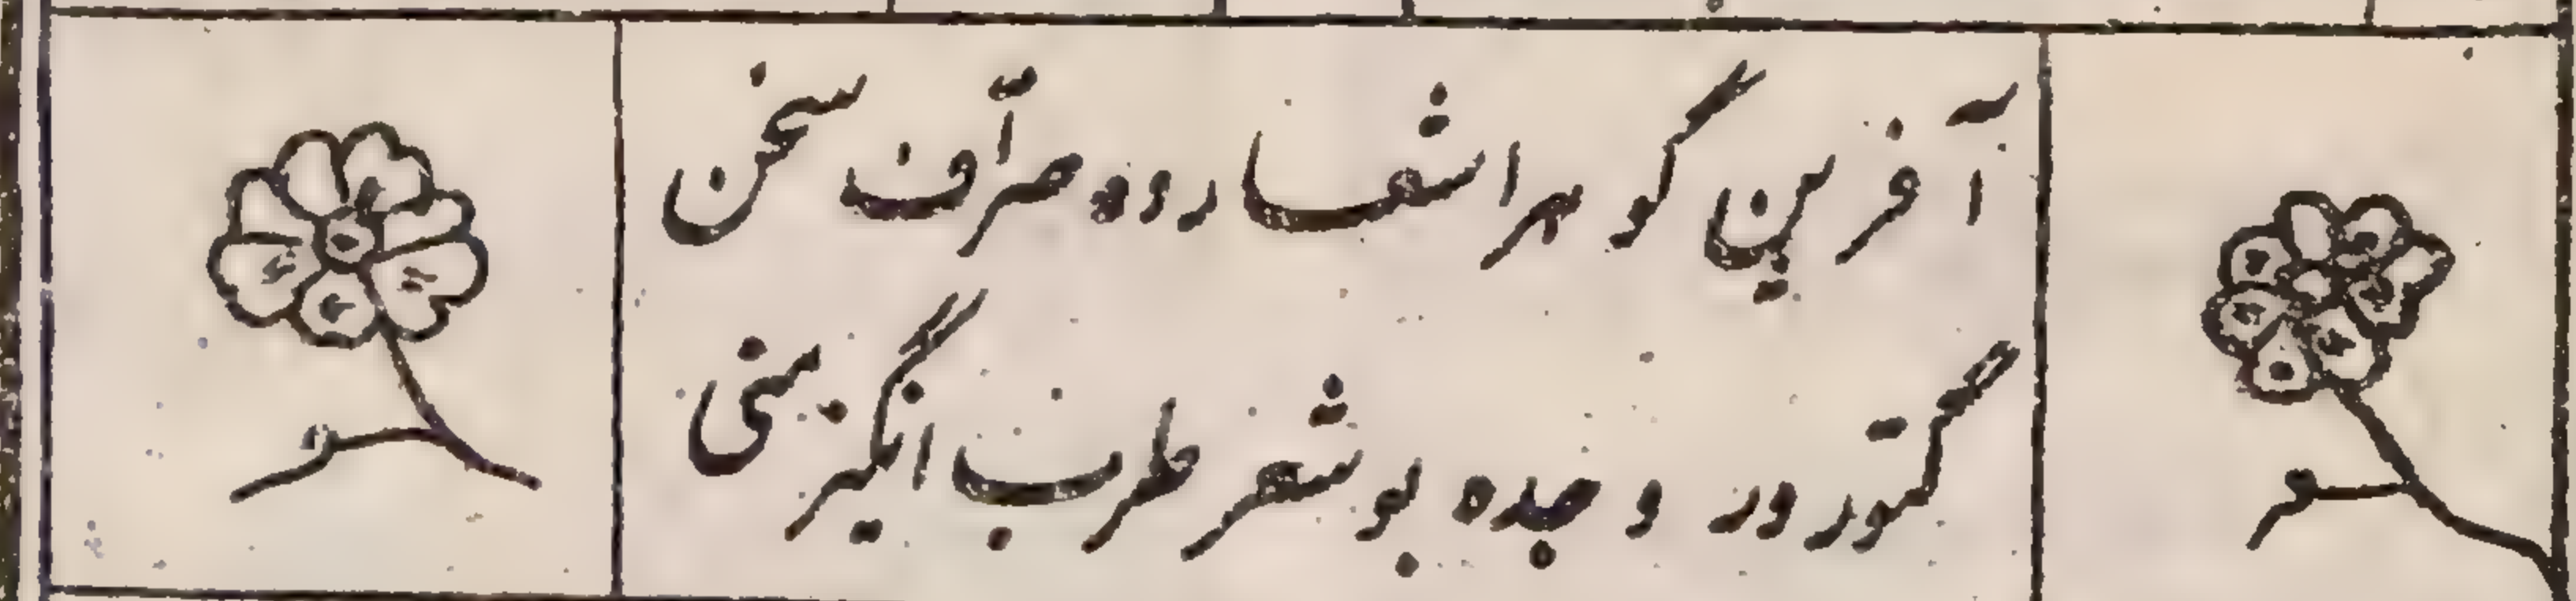 آفرین گوهر اشعارده صرّاف سخن
گتورور وجده بو شعر طرب انگیز منی